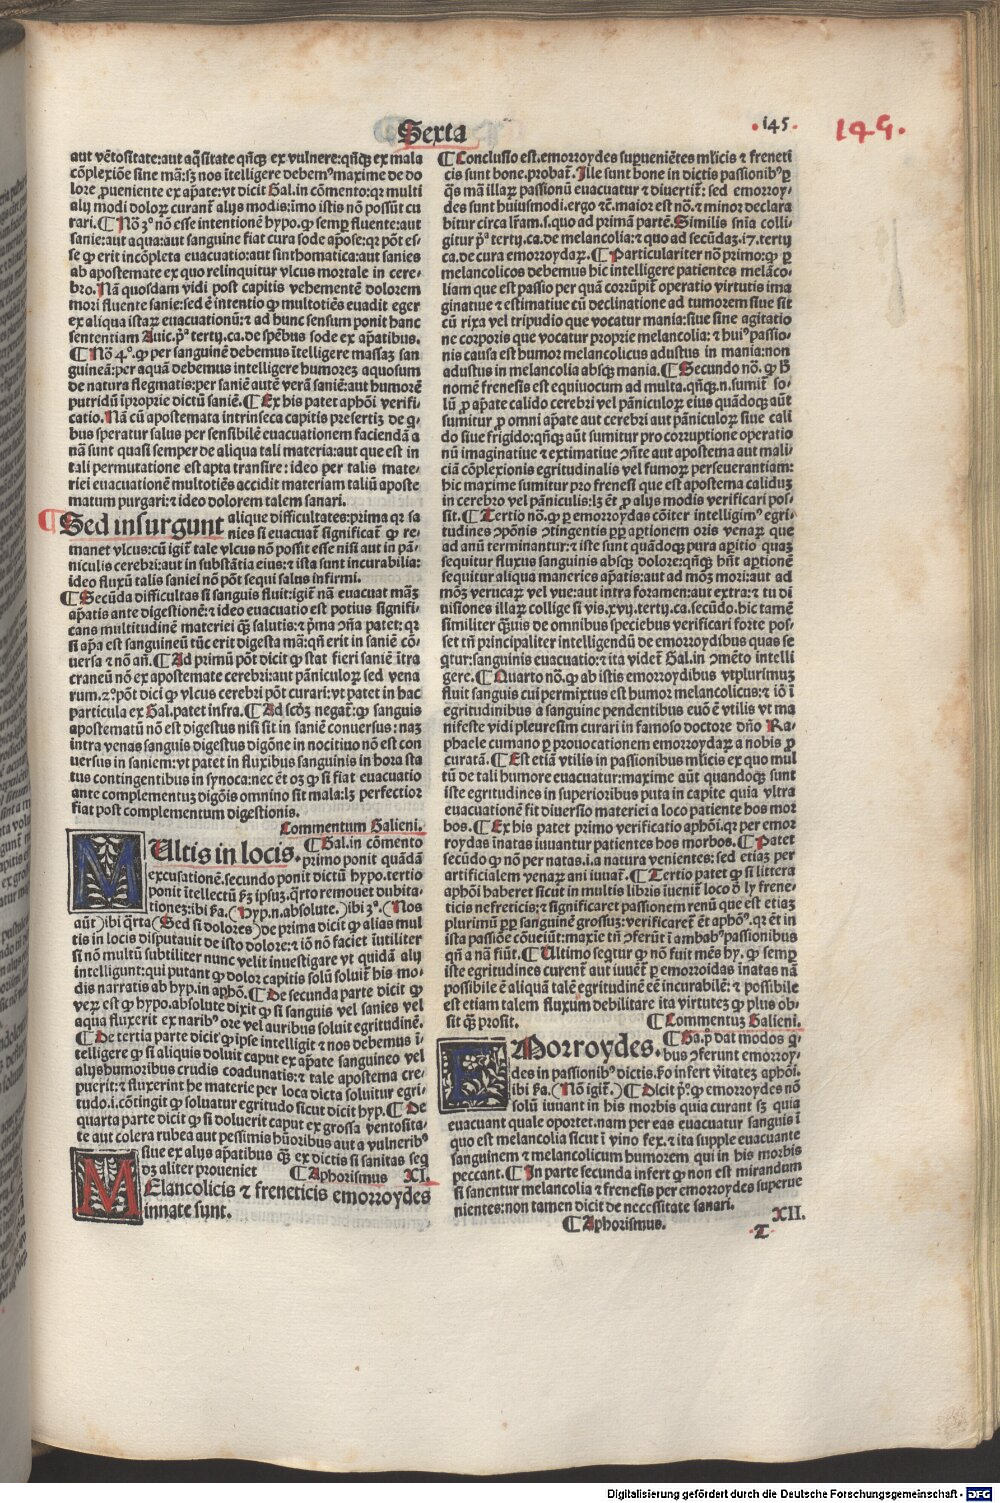 Sexta
145.
149.
aut vētositate:aut aq̄sitate qn̄cq̄ ex vulnere:qn̄dcq̄ ex mala
cōplexiōe sine mā:sꝫ nos ītelligere debemꝰ maxime de do
lore ꝓueniente ex apāte:vt dicit Gal.in cōmento:qꝛ multi
alij modi doloꝝ curant̄ alijs modis:imo istis nō possūt cu
rari.¶Nō 3° nō esse intentionē hypo.ꝙ semꝑ fluente:aut
sanie:aut aqua:aut sanguine fiat cura sode apose:qꝛ pōt es-
se ꝙ erit incōpleta euacuatio:aut sinthomatica:aut sanies
ab apostemate ex quo relinquitur vlcus mortale in cere-
bro.Nā quosdam vidi post capitis vehementē dolorem
mori fluente sanie:sed ē intentio ꝙ multotiēs euadit eger
ex aliqua istaꝝ euacuationū:⁊ ad hunc sensum ponit hanc
sententiam Auic.pᵃ tertij.ca.de spēbus sode ex apatibus.
¶Nō 4°.ꝙ per sanguinē debemus ītelligere massaꝫ san
guineā:per aquā debemus intelligere humoreꝫ aquosum
de natura flegmatis:per saniē autē verā saniē:aut humorē
putridū īproprie dictū saniē.¶Ex his patet aphōi verifi-
catio.Nā cū apostemata intrinseca capitis presertiꝫ de q̄-
bus speratur salus per sensibilē euacuationem faciendā a
nā sunt quasi semper de aliqua tali materia:aut que est in
tali permutatione est apta transire:ideo per talis mate-
riei euacuationē multotiēs accidit materiam taliū aposte
matum purgari:⁊ ideo dolorem talem sanari.
¶Sed insurgunt alique difficultates:prima qꝛ sa
nies si euacuat̄ significat̄ ꝙ re-
manet vlcus:cū igit̄ tale vlcus nō possit esse nisi aut in pā-
niculis cerebri:aut in substātia eius:⁊ ista sunt incurabilia:
ideo fluxū talis saniei nō pōt sequi salus infirmi.
¶Secūda difficultas si sanguis fluit:igit̄ nā euacuat māꝫ
apātis ante digestionē:⁊ ideo euacuatio est potius signifi-
cans multitudinē materiei q̄ꝫ salutis:⁊ pᵉma ꝯña patet:qꝛ
si apᵃa est sanguineū tūc erit digesta mā:qn̄ erit in saniē cō-
uersa ⁊ nō añ.¶Ad primū pōt dicit ꝙ stat fieri saniē ītra
craneū nō ex apostemate cerebri:aut pāniculoꝝ sed vena
rum.⁊ᵒ pōt dici ꝙ vlcus cerebri pōt curari:vt patet in hac
particula ex Gal.patet infra.¶Ad scd̄ꝫ negat̄:ꝙ sanguis
apostematū nō est digestus nisi sit in saniē conuersus:naꝫ
intra venas sanguis digestus digōne in nocitiuo nō est con
uersus in saniem:vt patet in fluxibus sanguinis in hora sta
tus contingentibus in synoca:nec ēt oꝫ ꝙ si fiat euacuatio
ante complementuꝫ digōis omnino sit mala:lꝫ perfectior
fiat post complementum digestionis.
Commentum Galieni.
MUltis in locis. ¶Gal.in cōmento
primo ponit quādā
excusationē.secundo ponit dictū hypo.tertio
ponit ītellectū ẜꝫ ipsuꝫ.q̄rto remouet dubita-
tioneꝫ:ibi ẜa.(Hyp.n.absolute.)ibi 3ᵃ.(Nos
aūt)ibi q̄rta(Sed si dolores)de prima dicit ꝙ alias mul
tis in locis disputauit de isto dolore:⁊ iō nō faciet īutiliter
si nō multū subtiliter nunc velit inuestigare vt quidā alij
intelligunt:qui putant ꝙ dolor capitis solū soluit̄ his mo-
dis narratis ab hyp.in aphō.¶De secunda parte dicit ꝙ
veꝝ est ꝙ hypo.absolute dixit ꝙ si sanguis vel sanies vel
aqua fluxerit ex naribꝰ ore vel auribus soluit egritudinē.
¶De tertia parte dicit ꝙ ipse intelligit ⁊ nos debemus ī-
telligere ꝙ si aliquis doluit caput ex apāte sanguineo vel
alijs humoribus crudis coadunatis:⁊ tale apostema cre-
puerit:⁊ fluxerint he materie per loca dicta soluitur egri-
tudo.i.cōtingit ꝙ soluatur egritudo sicut dicit hyp.¶De
quarta parte dicit ꝙ si doluerit caput ex grossa ventosita-
te aut colera rubea aut pessimis hūoribus aut a vulneribꝰ
siue ex alijs apatibus q̄ꝫ ex dictis si sanitas seq̄
dꝫ aliter proueniet ¶Aphorismus XI.
MElancolicis ⁊ freneticis emorroydes
innate sunt.
¶Conclusio est.emorroydes superueniētes mlīcis ⁊ freneti
cis sunt bone.probat̄.Ille sunt bone in dictis passionibꝰ ꝑ
q̄s mā illaꝝ passionū euacuatur ⁊ diuertit̄:sed emorroy-
des sunt huiusmodi.ergo ⁊c̄.maior est nō.⁊ minor declara
bitur circa lr̄am.s.quo ad primā partē.Similis sn̄ia colli-
gitur pᵃ tertij.ca.de melancolia:⁊ quo ad secūdaꝫ.17.tertij
ca.de cura emorroydaꝝ.¶Particulariter nō primo:ꝙ ꝑ
melancolicos debemus hic intelligere patientes melāco-
liam que est passio per quā corrūpit̄ operatio virtutis ima
ginatiue ⁊ estimatiue cū declinatione ad tumorem siue sit
cū rixa vel tripudio que vocatur mania:siue sine agitatio
ne corporis que vocatur proprie melancolia:⁊ huiꝰ passio-
nis causa est humor melancolicus adustus in mania:non
adustus in melancolia absqꝫ mania.¶Secundo nō.ꝙ ꝑ
nomē frenesis est equiuocum ad multa.qn̄qꝫ.n.sumit̄ so-
lū ꝓ apāte calido cerebri vel pāniculoꝝ eius quādoqꝫ aūt
sumitur ꝓ omni apāte aut cerebri aut pāniculoꝝ siue cali
do siue frigido:qn̄qꝫ aūt sumitur pro corruptione operatio
nū imaginatiue ⁊ extimatiue ꝯñte aut apostema aut mali-
ciā cōplexionis egritudinalis vel fumoꝝ perseuerantiam:
hic maxime sumitur pro frenesi que est apostema calidum
in cerebro vel pāniculis:lꝫ ēt ꝓ alijs modis verificari pos-
sit.¶Tertio nō.ꝙ ꝑ emorroydas cōiter intelligimꝰ egri-
tudines ꝯpōnis ꝯtingentis ꝑꝑ apertionem oris venaꝝ que
ad anū terminantur:⁊ iste sunt quādoqꝫ pura apertio quaꝫ
sequitur fluxus sanguinis absqꝫ dolore:qn̄qꝫ hn̄t aꝑtionē
sequitur aliqua maneries apātis:aut ad mōꝫ mori:aut ad
mōꝫ verucaꝝ vel vue:aut intra foramen:aut extra:⁊ tu di
uisiones illaꝝ collige si vis.xvij.tertij.ca.secūdo.hic tamē
similiter q̄ꝫuis de omnibus speciebus verificari forte pos-
set tn̄ principaliter intelligendū de emorroydibus quas se
qtur:sanguinis euacuatio:⁊ ita videt̄ Gal.in ꝯmēto intelli
gere.¶Quarto nō.ꝙ ab istis emorroydibus vtplurimuꝫ
fluit sanguis cui permixtus est humor melancolicus:⁊ iō ī
egritudinibus a sanguine pendentibus euō ē vtilis vt ma
nifeste vidi pleuresim curari in famoso doctore dn̄o Ra-
phaele cumano ꝑ prouocationem emorroydaꝝ a nobis ꝓ
curatā.¶Est etiā vtilis in passionibus mlīcis ex quo mul
tū de tali humore euacuatur:maxime aūt quandoqꝫ sunt
iste egritudines in superioribus puta in capite quia vltra
euacuationē fit diuersio materiei a loco patiente hos mor
bos.¶Ex his patet primo verificatio aphōi.qꝛ per emor
roydas inatas iuuantur patientes hos morbos.¶Patet
secūdo ꝙ nō per natas.i.a natura venientes:sed etiaꝫ per
artificialem venaꝝ ani iuuat̄.¶Tertio patet ꝙ si littera
aphōi haberet sicut in multis libris īuenit̄ loco ōī ly frene-
ticis nefreticis:⁊ significaret passionem renū que est etiaꝫ
plurimū ꝑꝑ sanguinē grossuꝫ:verificaret̄ ēt aphōꝰ.qꝛ ēt in
ista passiōe cōueīūt:maxie tn̄ ꝯferūt ī ambabꝰ passionibus
qn̄ a nā fiūt.¶Ultimo seqtur ꝙ nō fuit mēs hy.ꝙ semꝑ
iste egritudines curent̄ aut iuuēt̄ ꝑ emorroidas īnatas nā
possibile ē aliquā talē egritudinē eē incurabilē:⁊ possibile
est etiam talem fluxum debilitare ita virtuteꝫ ꝙ plus ob-
sit q̄ꝫ prosit. ¶Commentuꝫ Galieni.
EMorroydes. ¶Ga.pᵒ dat modos q̄-
bus ꝯferunt emorroy-
des in passionibꝰ dictis.ẜo infert v̄itateꝫ aphōi.
ibi ẜa.(Nō igit̄.)¶Dicit pᵒ.ꝙ emorroydes nō
solū iuuant in his morbis quia curant sꝫ quia
euacuant quale oportet.nam per eas euacuatur sanguis ī
quo est melancolia sicut ī vino fex.⁊ ita supple euacuante
sanguinem ⁊ melancolicum humorem qui in his morbis
peccant.¶In parte secunda infert ꝙ non est mirandum
si sanentur melancolia ⁊ frenesis per emorroydes superue
nientes:non tamen dicit de necessitate sanari.
¶Aphorismus. XII.
T
Digitalisierung gefördert durch die Deutsche Forschungsgemeinschaft - DFG